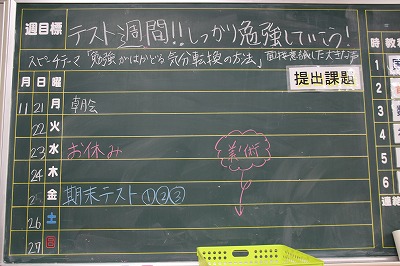 週目標 テスト週間!!しっかり勉強していこう!
スピーチテーマ「勉強がはかどる気分転換の方法」
提出課題
月 日 曜
11 21 月 朝会
22 火
23 水 お休み
24 木
25 金 期末テスト①②③
26 土
27 日
美術
時 教科
1
2
3
4
5
6
連絡